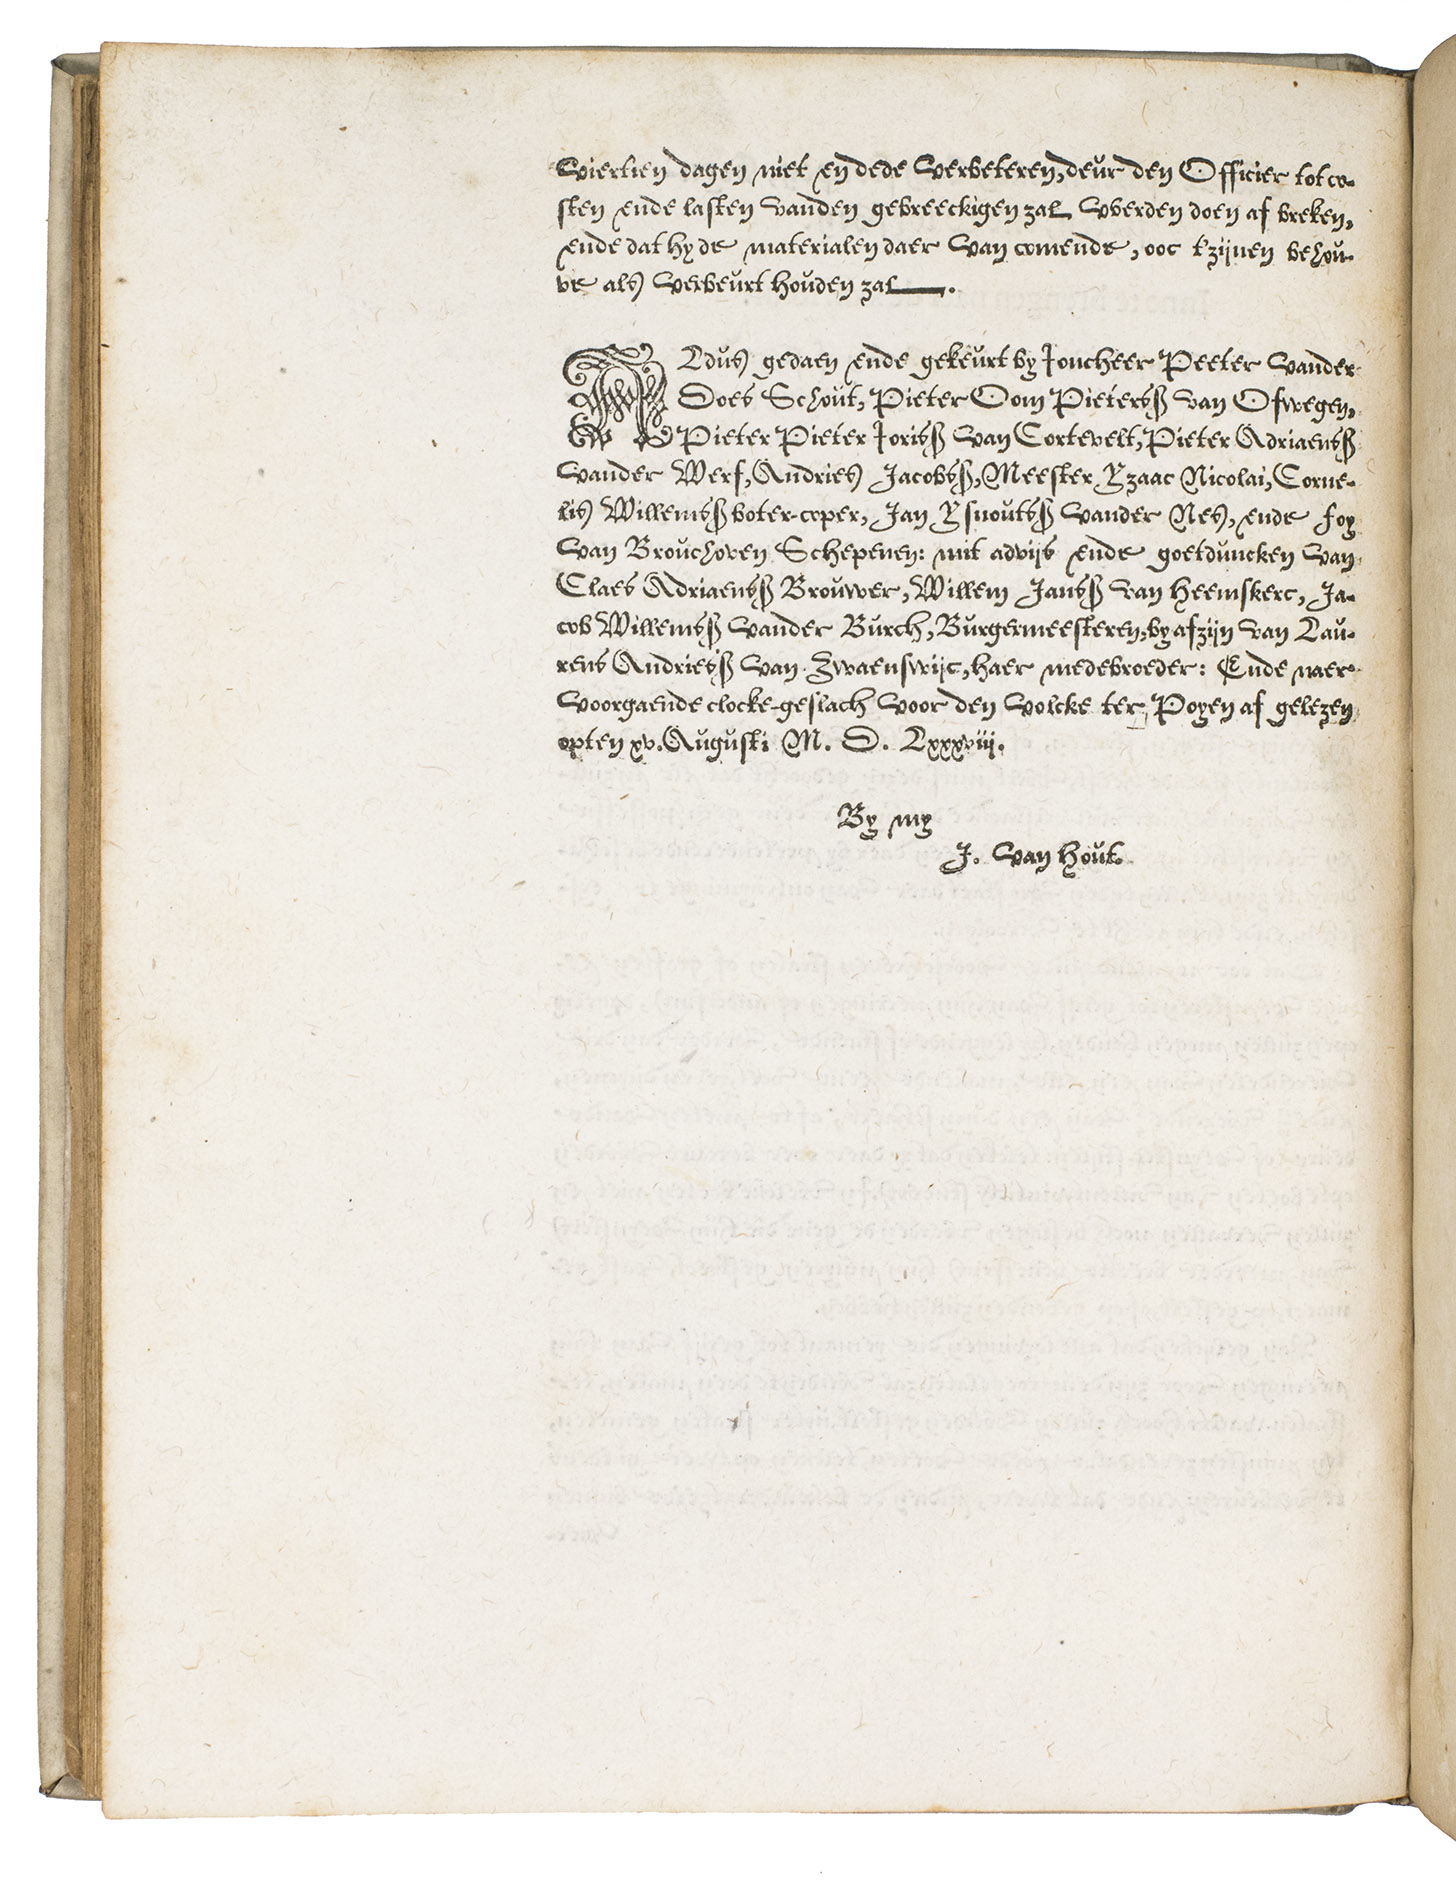 viertien dagen niet en dede verbeteren, deur den Officier tot co-
sten ende lasten vanden gebreeckigen zal vverden doen af breken,
ende dat hy de materialen daer van comende, ooc t'zijnen behou-
ve als verbeurt houden zal.
ALdus gedaen ende gekeurt by Joncheer Peeter vander
Does Schout, Pieter Oom Pieterss van Ofwegen,
Pieter Pieter Joriss van Cortevelt, Pieter Adriaenss
vander Werf, Andries Jacobss, Meester Yzaac Nicolai, Corne-
lis Willemss boter-coper, Jan Ysnoutss vander Nes, ende Foy
van Brouchoven Schepenen: mit advijs ende goetduncken van
Claes Adriaenss Brouwer, Willem Janss van Heemskerc, Ja-
cob Willemss vander Burch, Burgermeesteren, by afzijn van Lau-
rens Andriess van Zwaenswijc, haer medebroeder: Ende naer
voorgaende clocke-geslach voor den volcke ter Poyen af gelezen
opten xv. Augusti M. D. Lxxxviij.
By my
J. van Hout.